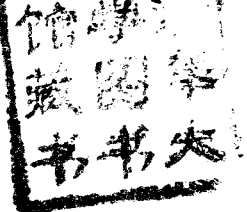 华大
学图书
馆藏书